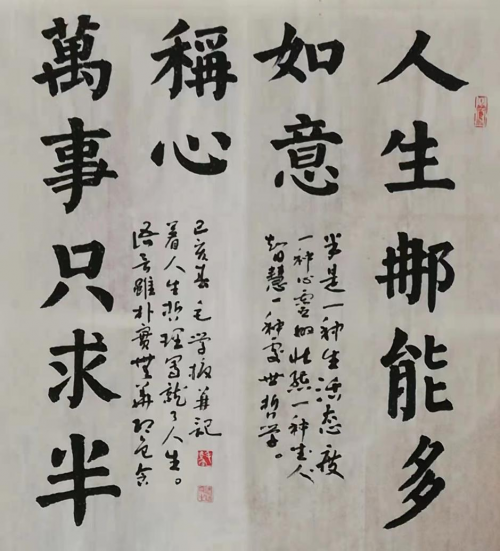 人生哪能多
如意
萬事只求半
稱心
半是一种生活态度
一种心灵的状态一种
智慧一种处世哲学。
语言雖朴實無華却包含
着人生哲理写就了人生。
己亥春毛学振并記